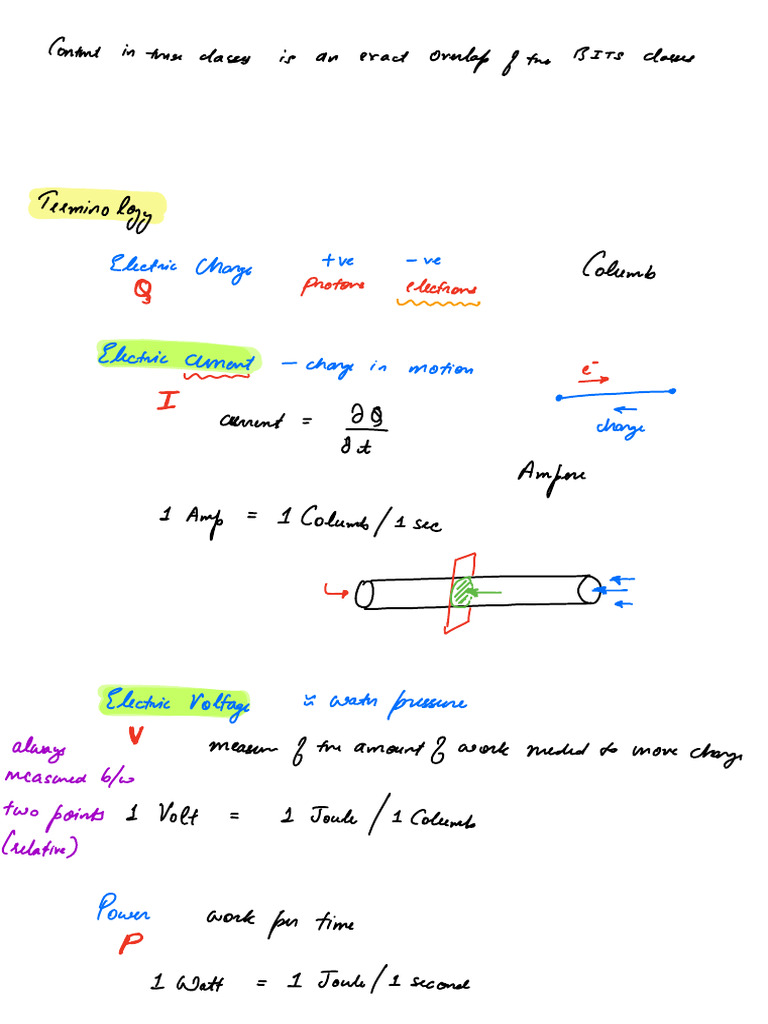 Content in these classes is an exact overlap of the BITS classes
Terminology
Electric Charge +ve -ve Columb
Q protons electrons
Electric current - charge in motion e-
I
charge
current = ∂Q
∂t
Ampere
1 Amp = 1 Columb / 1 sec
Electric Voltage ≈ water pressure
V
always measure of the amount of work needed to move charge
measured b/w
two points 1 Volt = 1 Joule / 1 Columb
(relative)
Power work per time
P
1 Watt = 1 Joule / 1 second